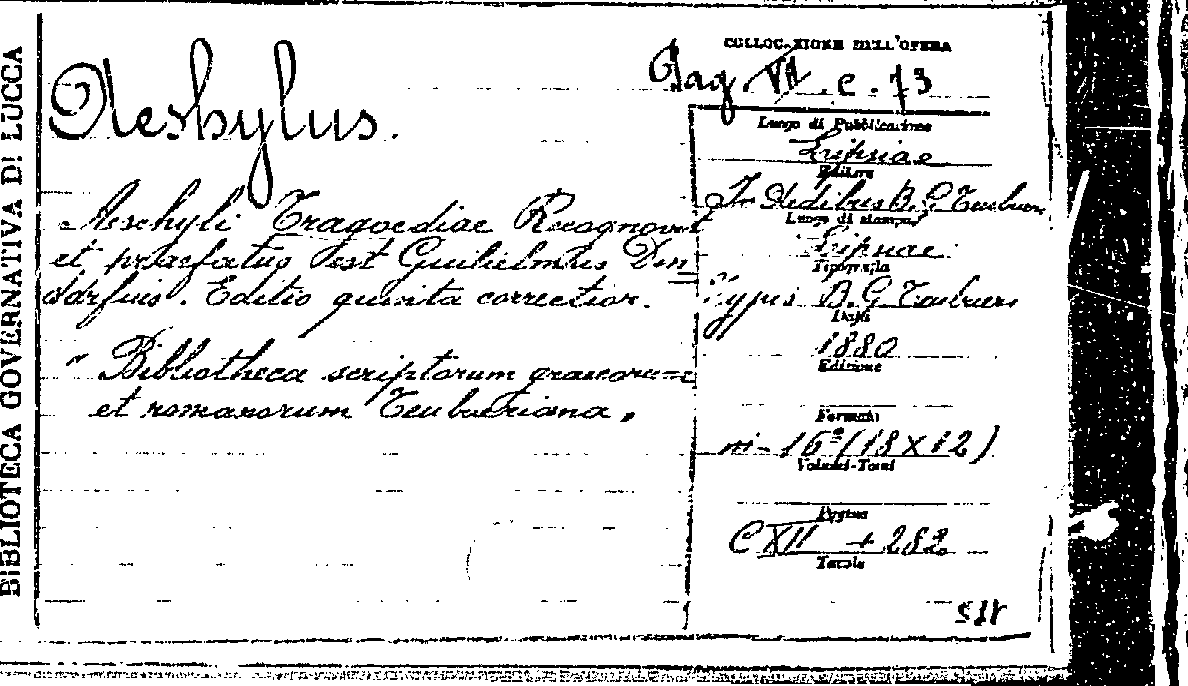 BIBLIOTECA GOVERNATIVA DI LUCCA
COLLOCAZIONE DELL'OPERA
Pag. VII. e. 73
Aeshylus.
Aeschyli Tragoediae Recognovit
et praefatus est Guilielmus Din=
dorfius. Editio quinta correctior.
" Bibliotheca scriptorum graecorum
et romanorum Teubneriana "
Luogo di Pubblicazione
Lipsiae
Editore
In Aedibus B. G. Teubneri
Luogo di stampa
Lipsiae
Tipografia
Typis B. G. Teubneri
Data
1880
Edizione
Formato
in-16º (18 x 12)
Volumi-Tomi
Pagine
CXII + 282
Tavole